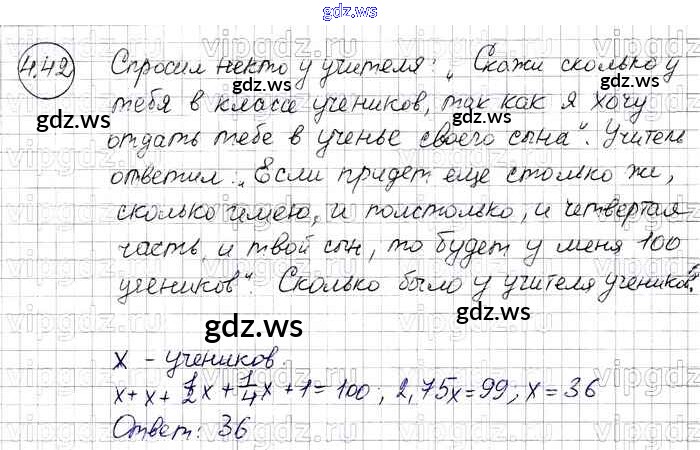 gdz.ws
4.42 Спросил некто у учителя: „Скажи сколько у
тебя в классе учеников, так как я хочу
gdz.ws gdz.ws
отдать тебе в ученье своего сына". Учитель
ответил: „Если придет еще столько же,
сколько имею, и полстолько, и четвертая
часть и твой сын, то будет у меня 100
учеников". Сколько было у учителя учеников?
gdz.ws gdz.ws
x - учеников.
x + x + 1/2x + 1/4x + 1 = 100; 2,75x = 99; x = 36
Ответ: 36
gdz.ws